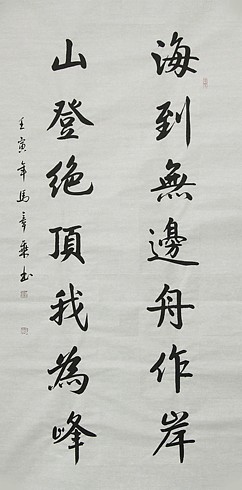 海到無邊舟作岸
山登絕頂我為峰
壬寅年馬章乘书